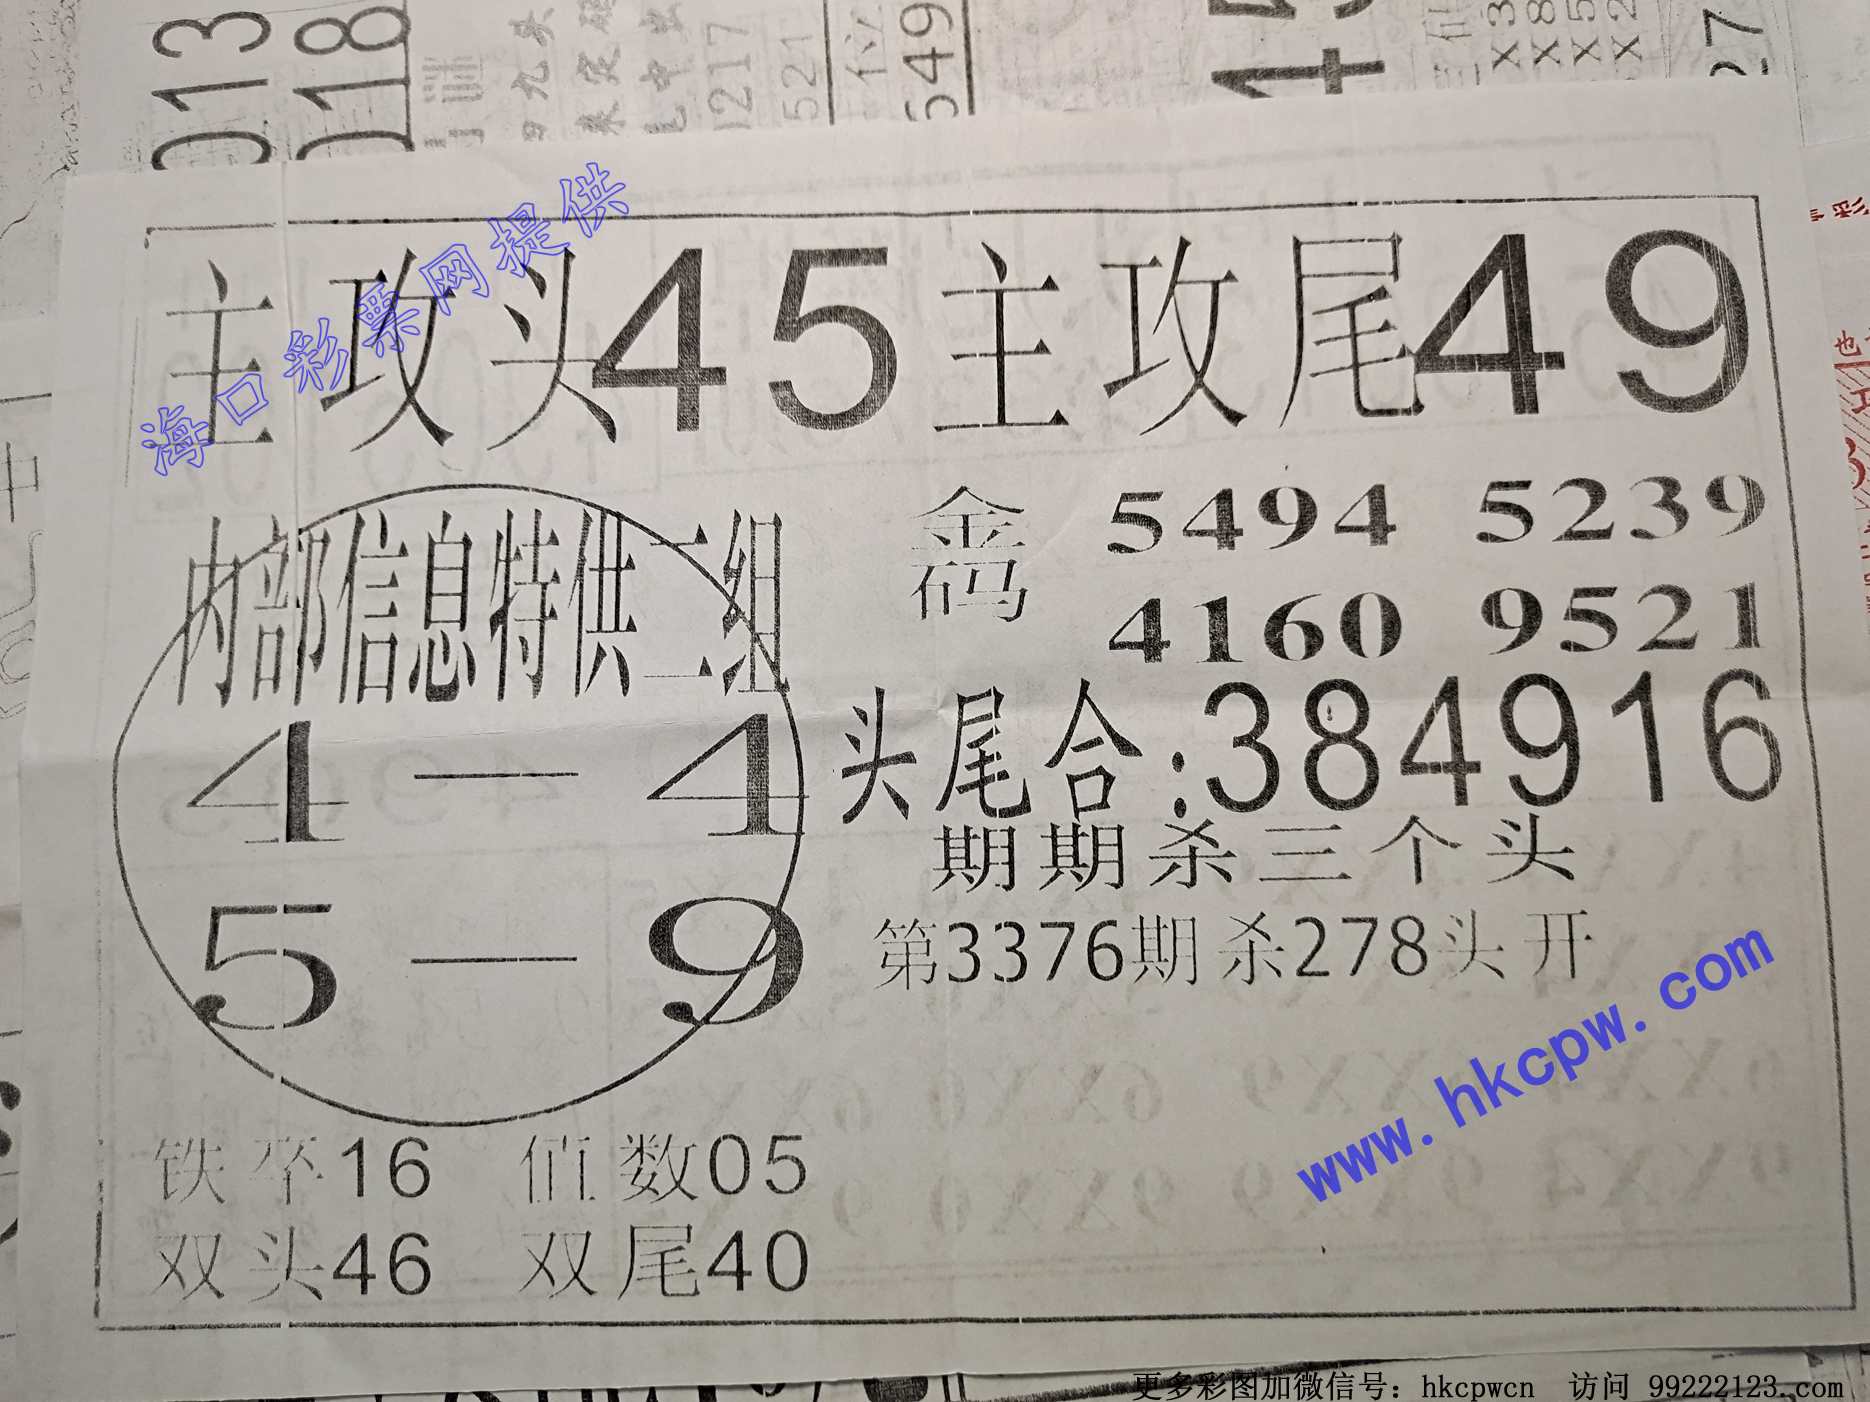 013
018
1217
521
位
549
27
海口彩票网提供
主攻头45主攻尾49
内部信息特供二组
4—4
5—9
金码 5494 5239
4160 9521
头尾合:384916
期期杀三个头
第3376期杀278头开
www.hkcpw.com
铁卒16 值数05
双头46 双尾40
更多彩图加微信号: hkcpwcn 访问 99222123.com